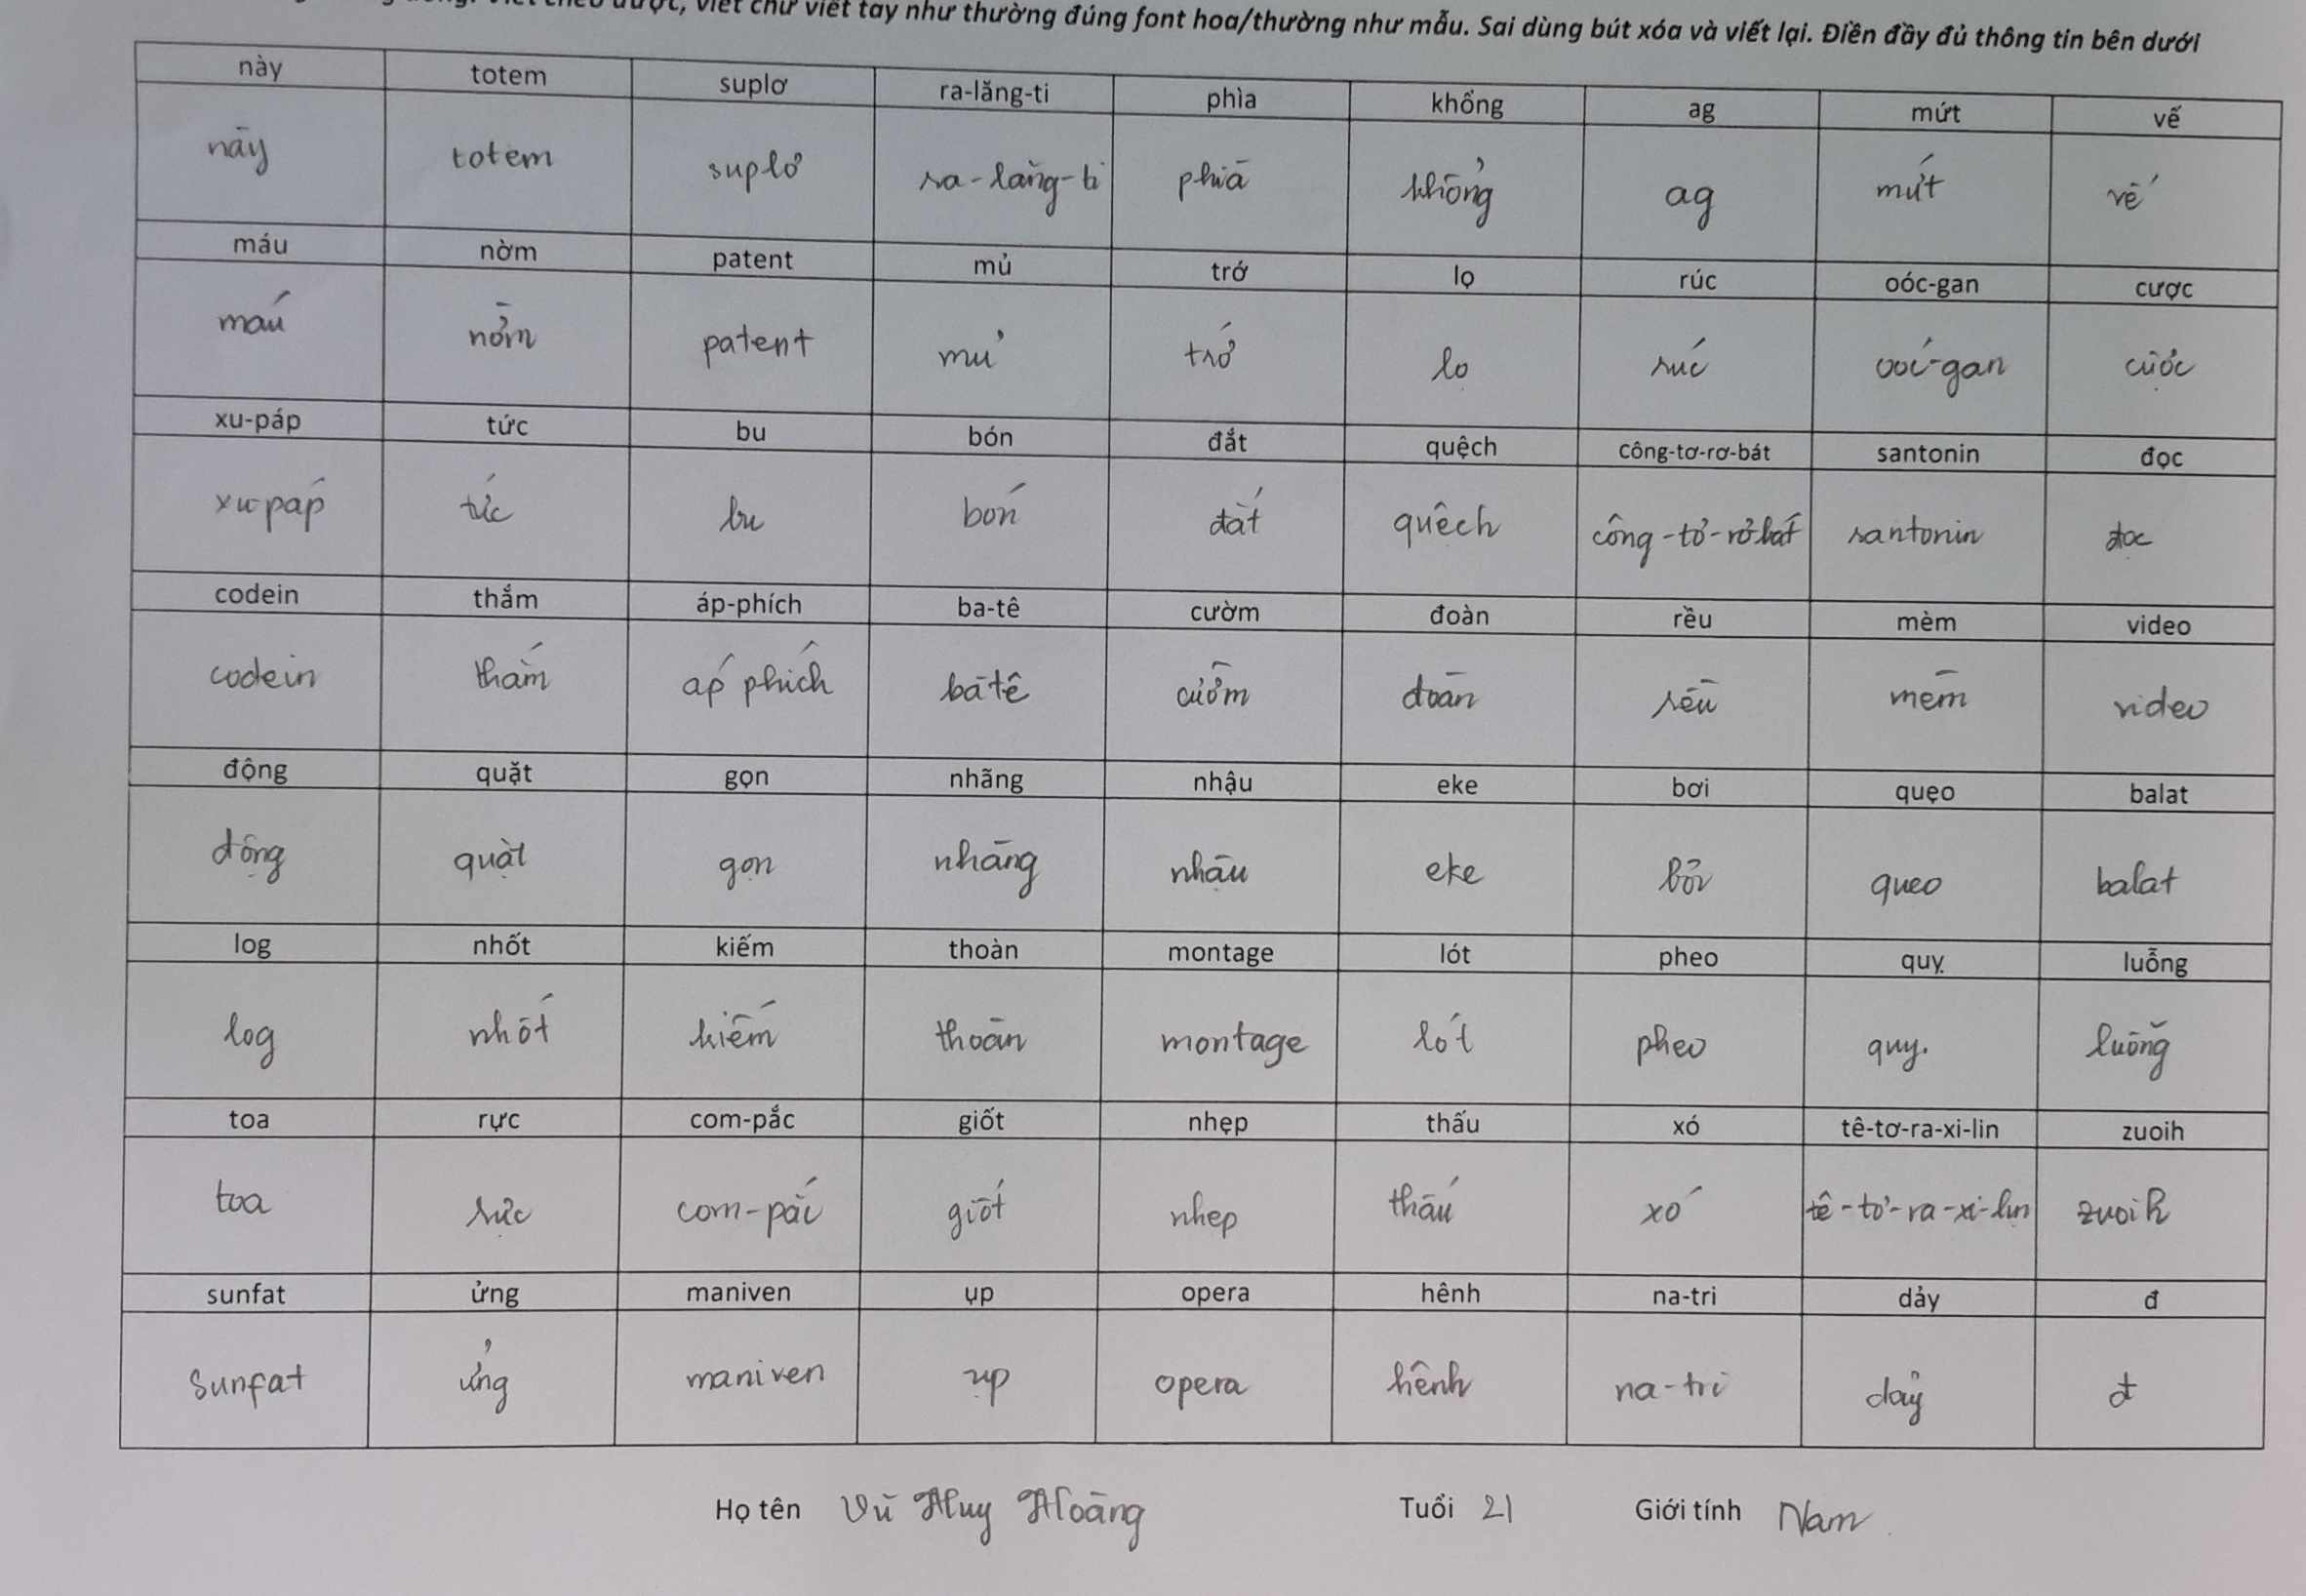 viết chữ viết tay như thường đúng font hoa/thường như mẫu. Sai dùng bút xóa và viết lại. Điền đầy đủ thông tin bên dưới
này totem suplơ ra-lăng-ti phìa khổng ag mứt vế
này totem suplơ ra-lăng-ti phìa khổng ag mứt vế
máu nờm patent mủ trớ lọ rúc oóc-gan cược
máu nờm patent mủ trớ lọ rúc oóc-gan cược
xu-páp tức bu bón đắt quệch công-tơ-rơ-bát santonin đọc
xu-páp tức bu bón đắt quệch công-tơ-rơ-bát santonin đọc
codein thắm áp-phích ba-tê cườm đoàn rều mèm video
codein thắm áp phích ba tê cườm đoàn rều mèm video
động quặt gọn nhãng nhậu eke bơi quẹo balat
động quặt gọn nhãng nhậu eke bơi queo balat
log nhốt kiếm thoàn montage lót pheo quỵ luỗng
log nhốt kiếm thoàn montage lót pheo quỵ luỗng
toa rực com-pắc giốt nhẹp thấu xó tê-tơ-ra-xi-lin zuoih
toa rực com-pắc giốt nhẹp thấu xó tê-tơ-ra-xi-lin zuoih
sunfat ửng maniven ụp opera hênh na-tri dảy đ
sunfat ửng maniven ụp opera hênh na-tri dảy đ
Họ tên Vũ Huy Hoàng Tuổi 21 Giới tính Nam